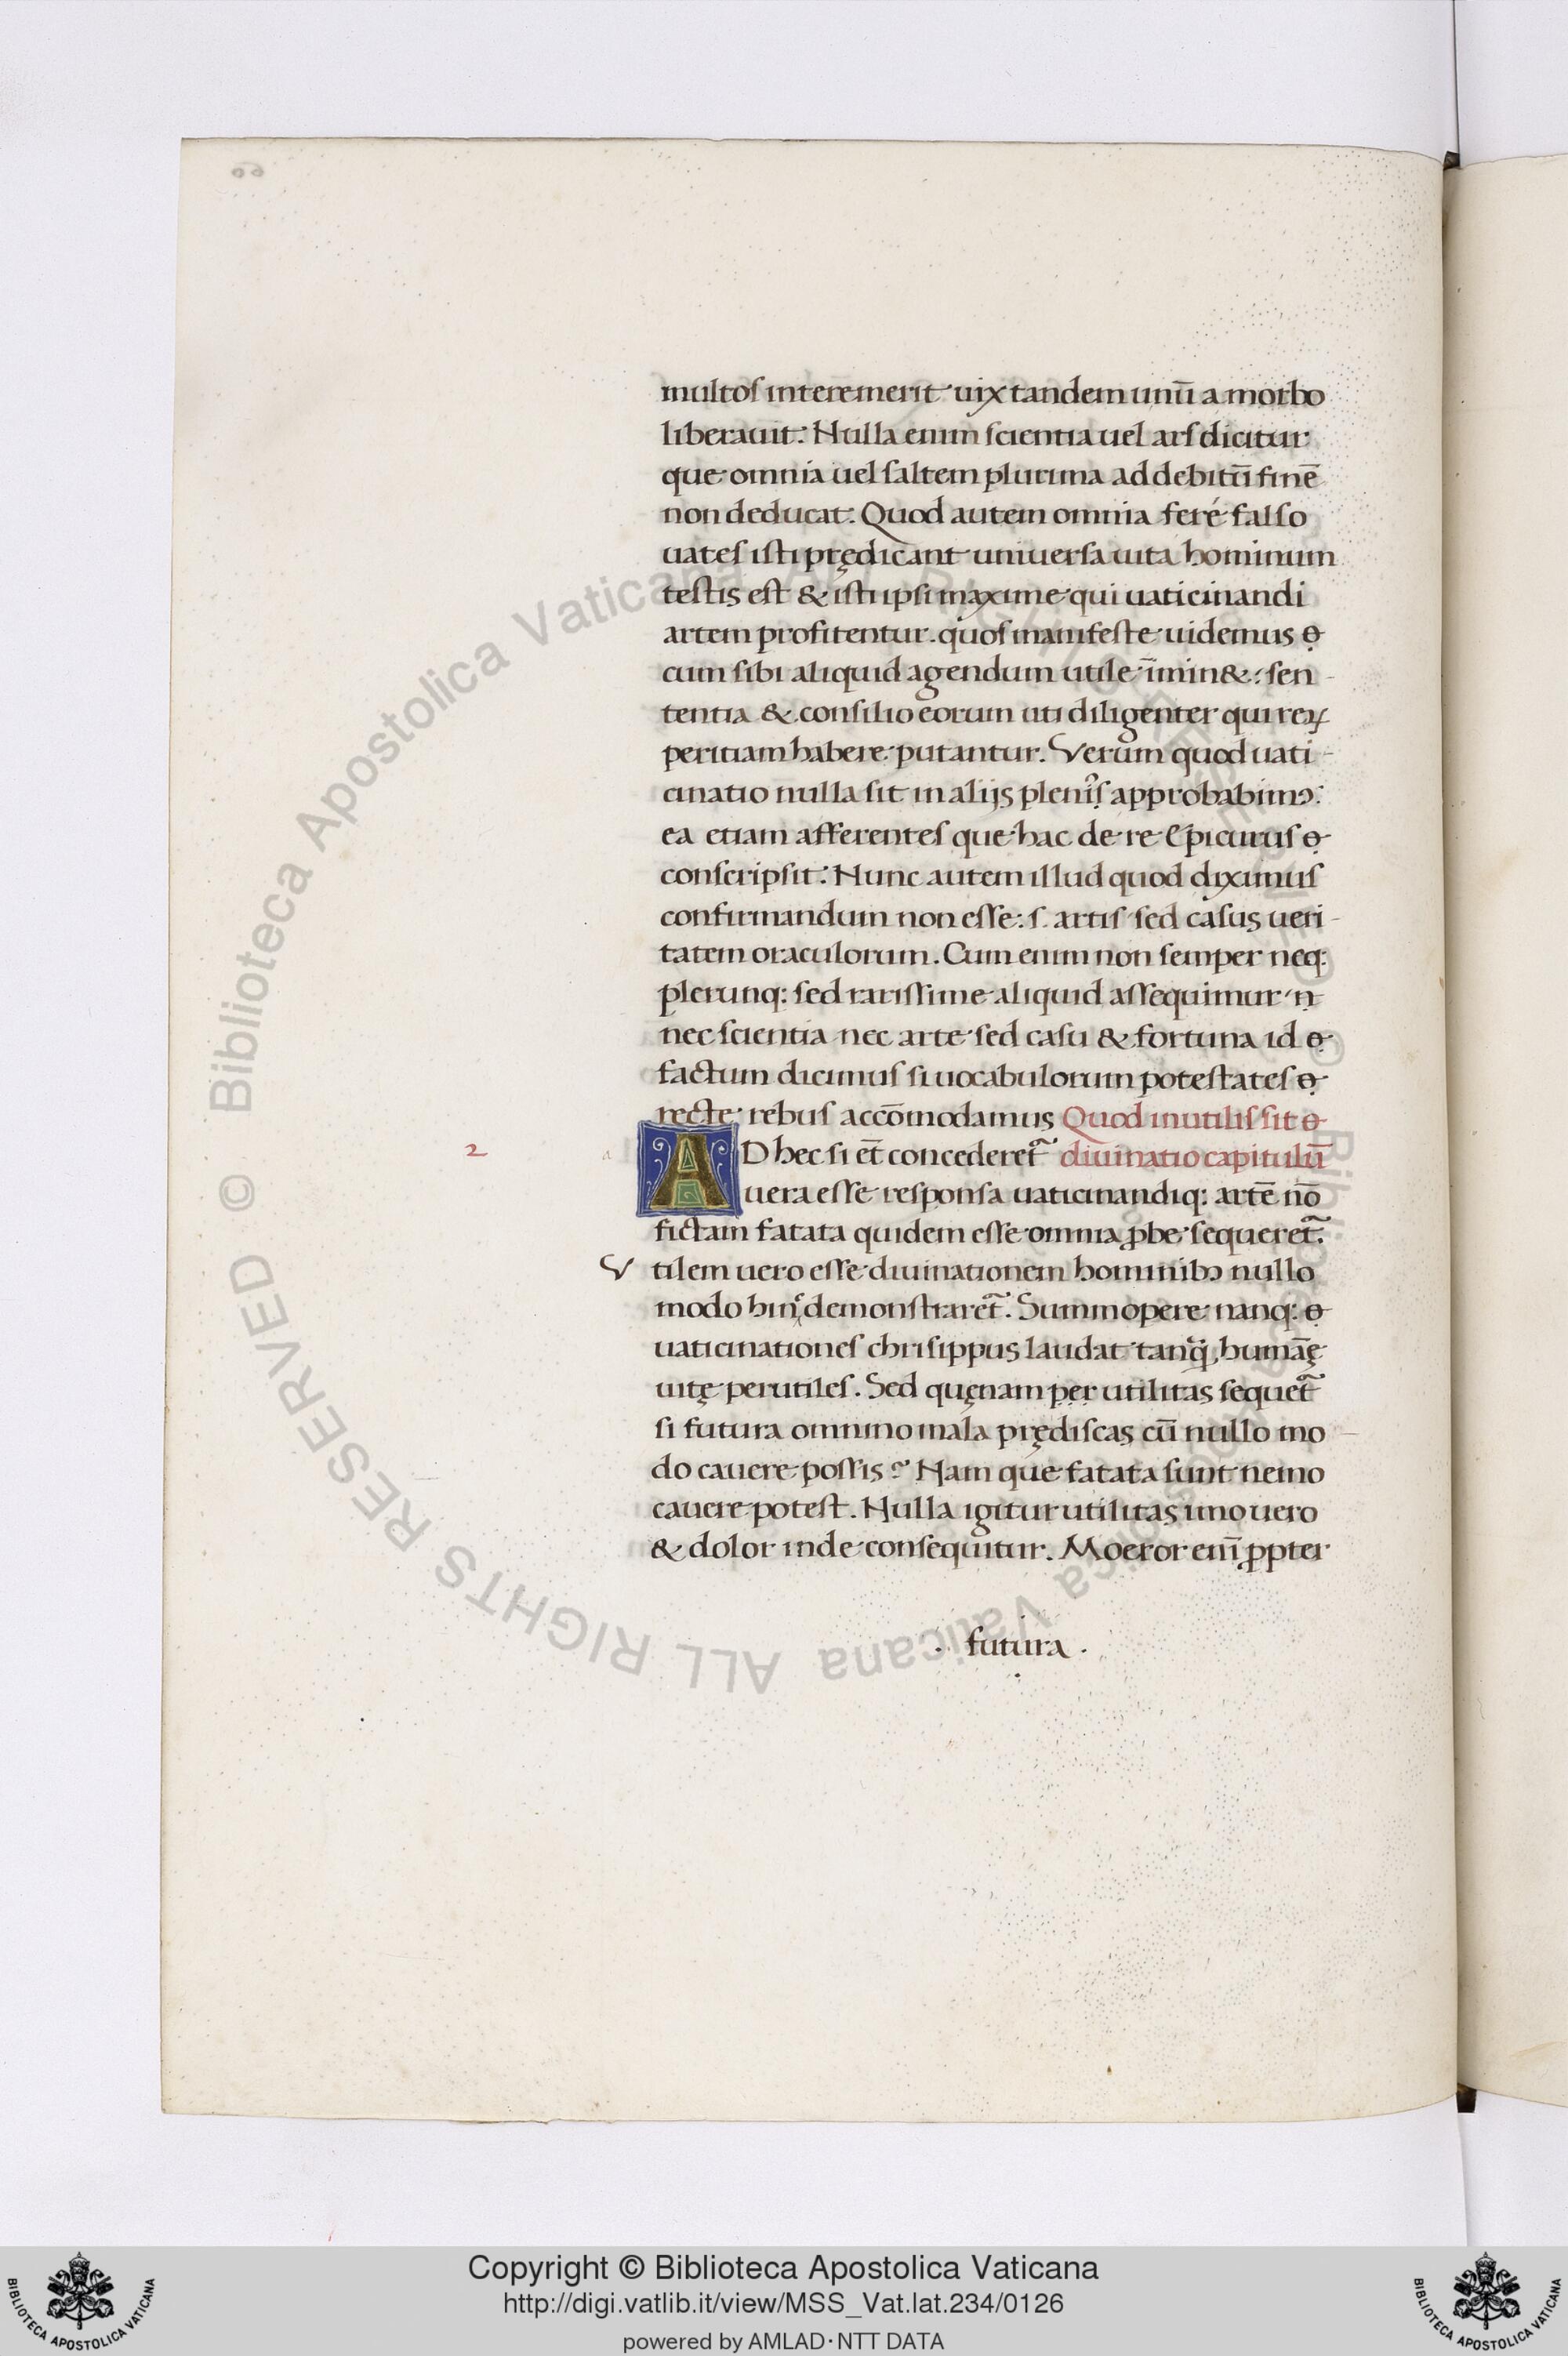 multos interemerit uix tandem unū a morbo
liberauit: Nulla enim scientia uel ars dicitur
que omnia uel saltem plurima ad debitū finē
non deducat: Quod autem omnia feré falso
uates isti prędicant uniuersa uita hominum
testis est & isti ipsi maxime qui uaticinandi
artem profitentur. quos manifeste uidemus
cum sibi aliquid agendum utile īmin&: sen-
tentia & consilio eorum uti diligenter qui reꝝ
peritiam habere putantur. Verum quod uati-
cinatio nulla sit in alijs approbabimꝰ:
ea etiam afferentes que hac de re Epicurus
conscripsit: Nunc autem illud quod diximus
confirmandum non esse: s. artis sed casus ueri-
tatem oraculorum. Cum enim non semper neq:
plerunq: sed rarissime aliquid assequimur
nec scientia nec arte sed casu & fortuna id
factum dicimus si uocabulorum potestates
recte rebus accōmodamus Quod inutilis sit
2 AD hec si et̄ concederet᷑ diuinatio capitulū
uera esse responsa uaticinandiq: artē nō
fictam fatata quidem esse omnia ꝓbe sequeret᷑.
Vtilem uero esse diuinationem hominibꝰ nullo
modo hinc demonstraret᷑. Summopere nanq:
uaticinationes chrisippus laudat tanq̃ humāę
uitę perutiles. Sed quęnam per utilitas sequet᷑
si futura omnino mala prędiscas cū nullo mo-
do cauere possis? Nam que fatata sunt nemo
cauere potest. Nulla igitur utilitas imo uero
& dolor inde consequitur. Moeror enī ꝓpter
. futura .
Biblioteca Apostolica Vaticana ALL RIGHTS RESERVED ©
Copyright © Biblioteca Apostolica Vaticana
http://digi.vatlib.it/view/MSS_Vat.lat.234/0126
powered by AMLAD·NTT DATA
BIBLIOTECA APOSTOLICA VATICANA
BIBLIOTECA APOSTOLICA VATICANA